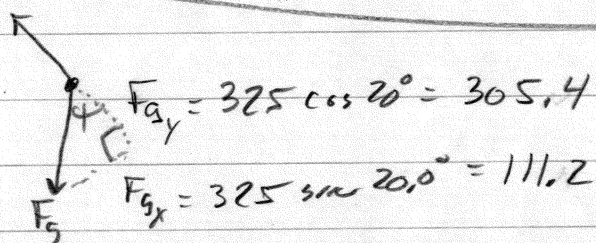 F_gy = 325 cos 20° = 305.4
F_gx = 325 sin 20.0° = 111.2
F_g